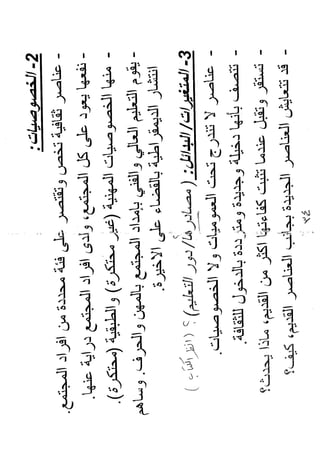 2- الخصوصيات:
- عناصر ثقافية تخص وتقتصر على فئة محددة من افراد المجتمع.
- نفعها يعود على كل المجتمع، ولدى افراد المجتمع دراية عنها.
- منها الخصوصيات المهنية (غير محتكرة) و الطبقية (محتكرة).
- يقوم التعليم العالي والفني بإمداد المجتمع بالمهن والحرف. وساهم
انتشار الديمقراطية بالقضاء على الاخيرة.
3- المتغيرات/ البدائل: ( مصادرها/ دور التعليم) ؟ (انظر الكتاب)
- عناصر لا تندرج تحت العموميات ولا الخصوصيات.
- تتصف بأنها دخيلة و جديدة و مترددة بالدخول للثقافة.
- تستقر وتقبل عندما تثبت كفاءتها اكثر من القديم، ماذا يحدث؟
- قد تتعايش العناصر الجديدة بجانب العناصر القديم، كيف؟
٣٤